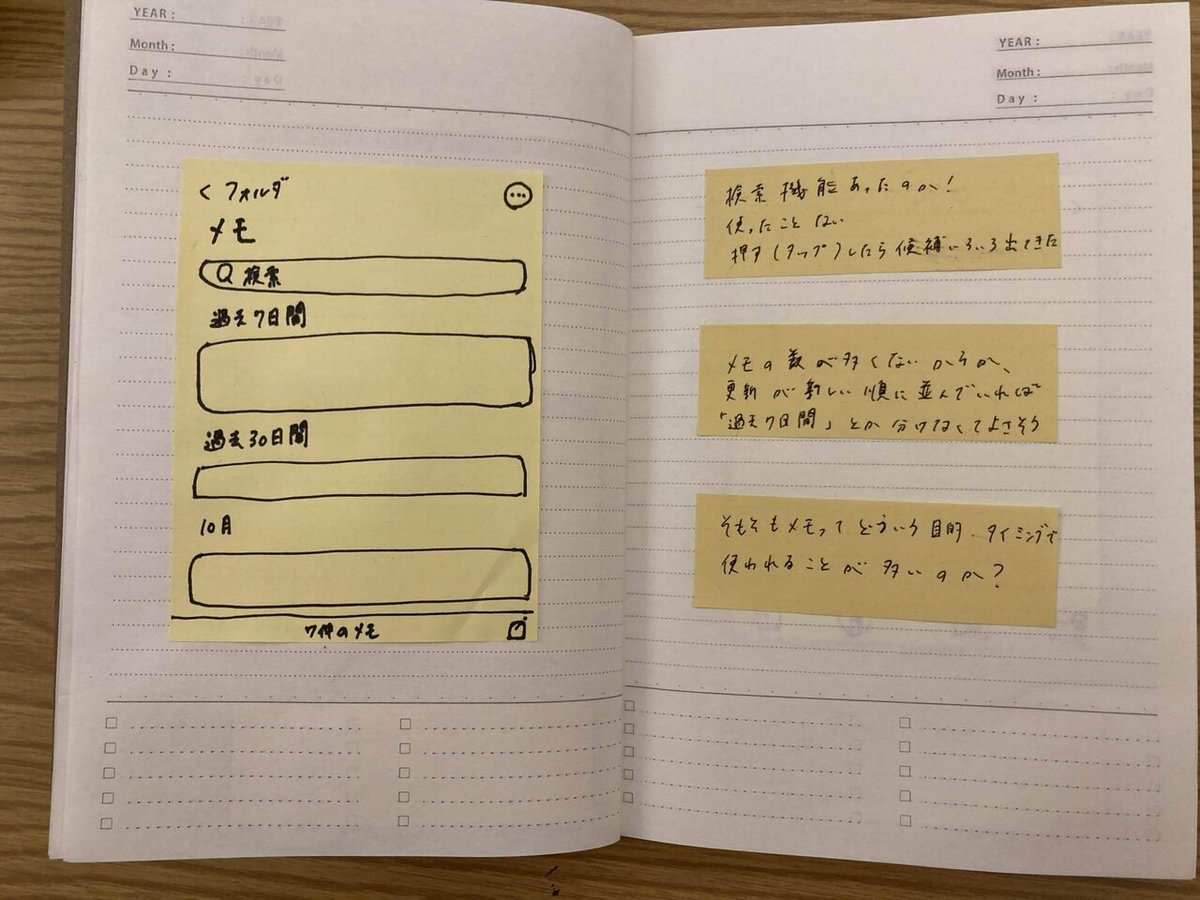 YEAR :
Month :
Day :
< フォルダ
メモ
検索
過去7日間
過去30日間
10月
7件のメモ
YEAR :
Month :
Day :
検索機能あったのか!
使ったことない
押す(タップ)したら候補いろいろ出てきた
メモの数が多くないからか、
更新が新しい順に並んでいれば
「過去7日間」とか分けなくてよさそう
そもそもメモってどういう目的・タイミングで
使われることが多いのか?